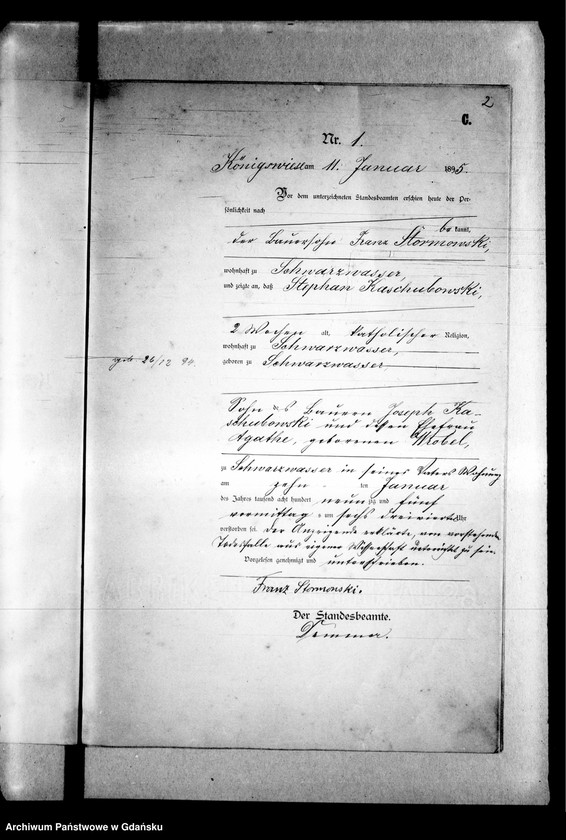 2
C.
Nr. 1.
Königswiese am 11. Januar 1895.
Vor dem unterzeichneten Standesbeamten erschien heute der Per-
sönlichkeit nach
bekannt,
der Bauersohn Franz Stormowski,
wohnhaft zu Schwarzwasser,
und zeigte an, daß Stephan Kaschubowski,
2 Wochen alt, katholischer Religion,
wohnhaft zu Schwarzwasser,
geb. 26/12 94.
geboren zu Schwarzwasser,
Sohn des Bauern Joseph Ka-
schubowski und dessen Ehefrau
Agathe, geborenen
zu Schwarzwasser in seines Vaters Wohnung
am zehn ten Januar
des Jahres tausend acht hundert neunzig und fünf
vormittag s um sechs dreiviertel Uhr
verstorben sei. Der Anzeigende erklärte, von vorstehendem
Todesfalle aus eigener Wissenschaft unterrichtet zu sein.
Vorgelesen, genehmigt und unterschrieben.
Franz Stormowski.
Der Standesbeamte.
Archiwum Państwowe w Gdańsku